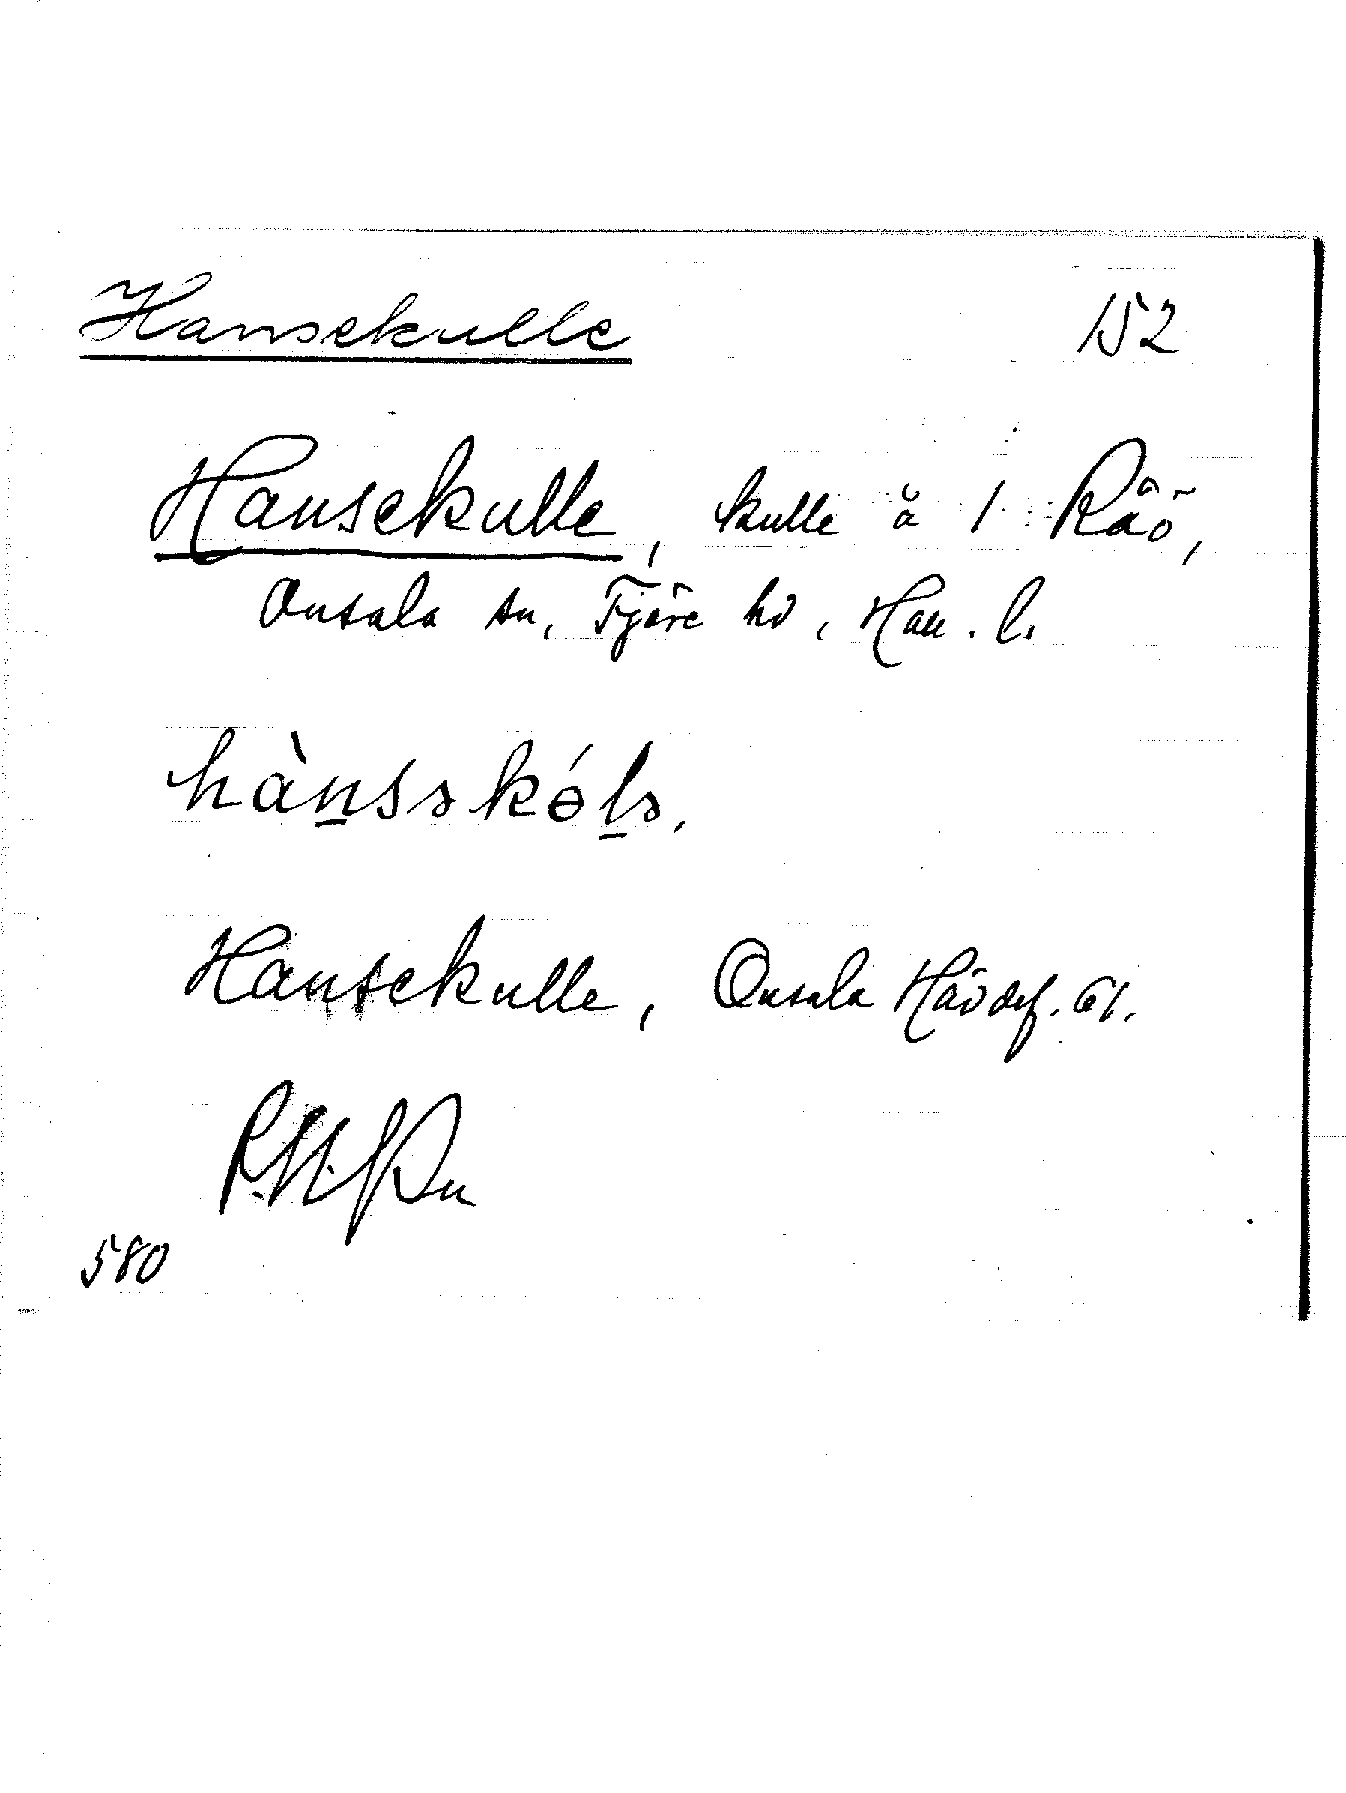 Hansekulle 152
Hansekulle, kulle å 1 Råö,
Onsala sn, Fjäre hd, Hall. l.
hàn̠səskɵ́l̠ə.
Hansekulle, Onsala Hävdef. 61.
580